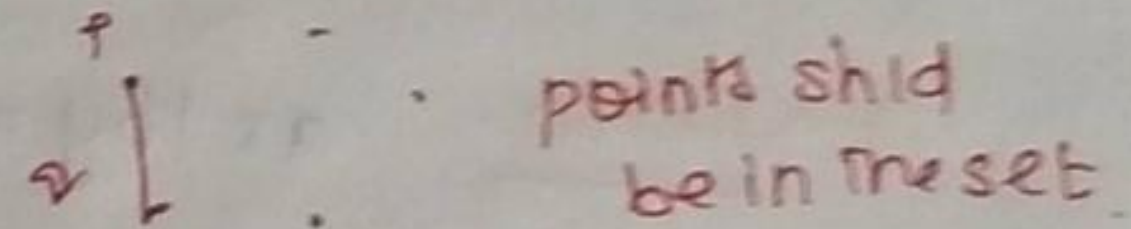 P
points shld
be in the set